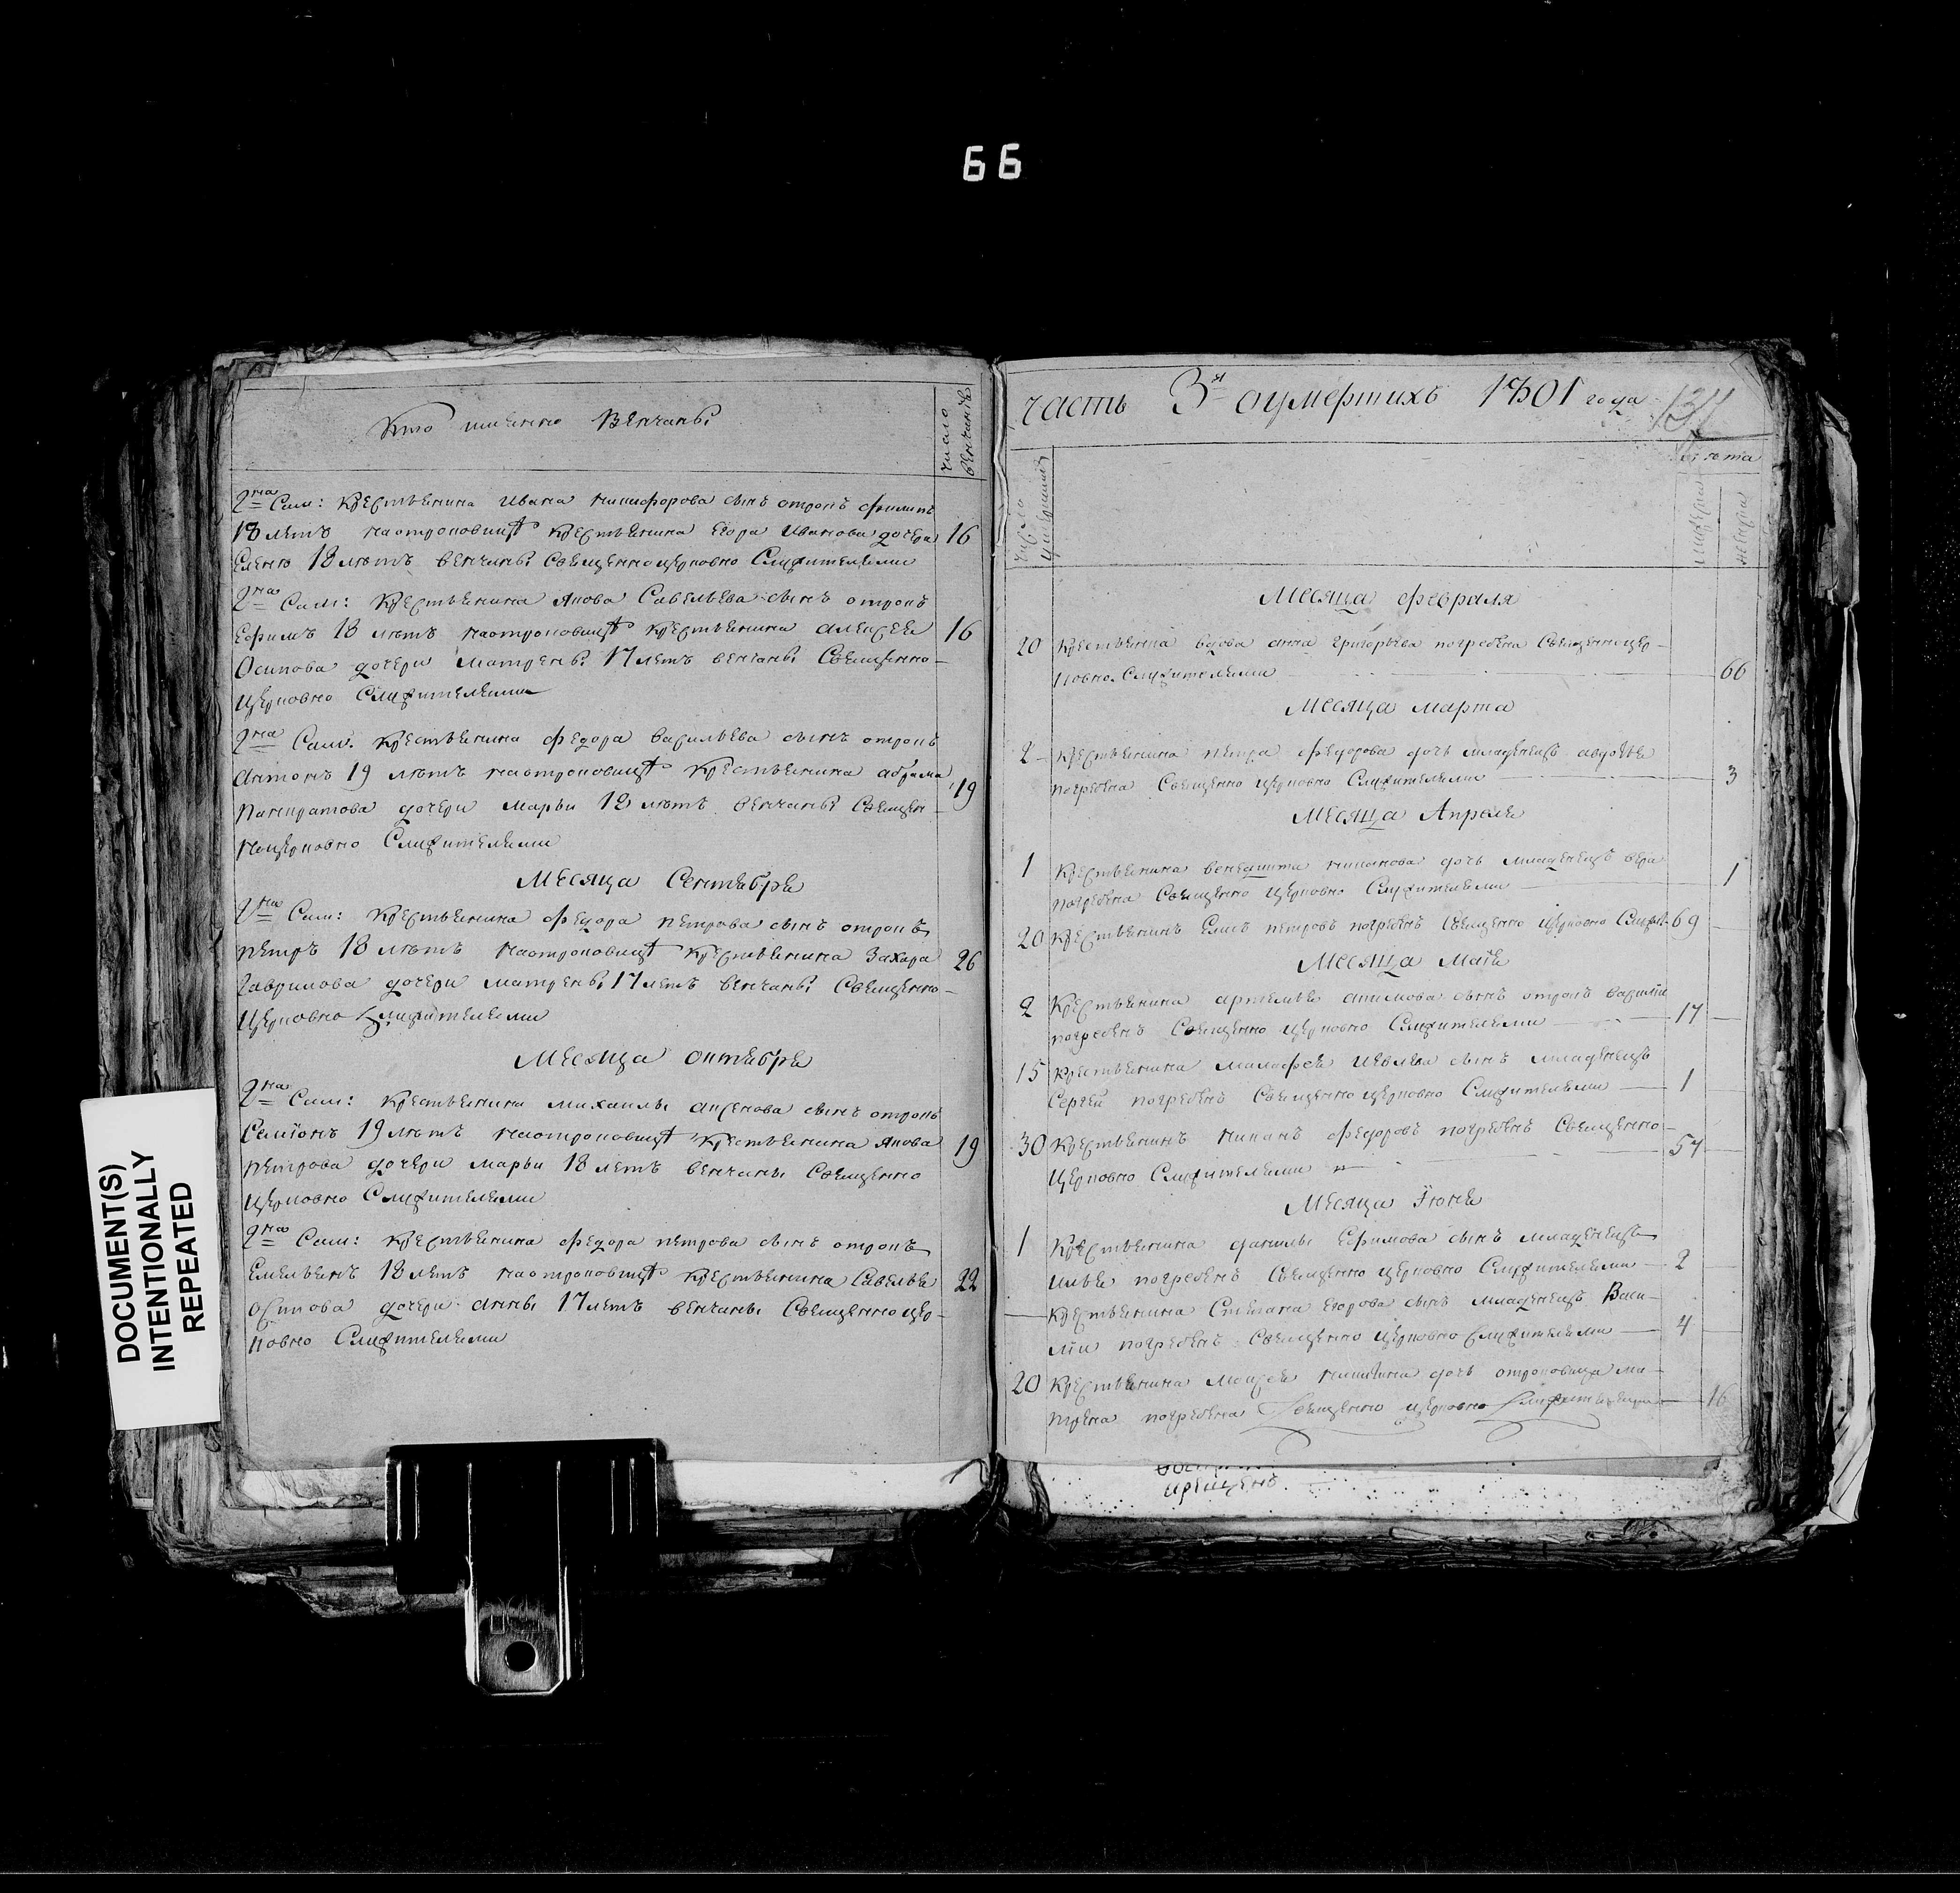 66
Кто имянно Венчаны
число венчаниевъ
2ма Сим: Крестьянина Ивана никифорова сынъ отрокъ филипъ
18 летъ наотроковицѣ крестьянина Егора Иванова дочери 16
Елены 18 лѣтъ венчаны Священноцерковно Служителями
2ма Сим: Крестьянина Якова Савельева сынъ отрокъ
Ефимъ 18 лѣтъ наотроковицѣ крестьянина алексея 16
Осипова дочери матрены 17 летъ венчаны Священно-
церковно Служителями
2ма Сим: крестьянина федора васильева сынъ отрокъ
антонъ 19 лѣтъ наотроковицѣ крестьянина абрама 19
панкратова дочери марьи 18 лѣтъ венчаны Священ-
ноцерковно Служителями
Месяца Сентября
2ма Сим: крестьянина федора петрова сынъ отрокъ
петръ 18 лѣтъ наотроковицѣ крестьянина Захара 26
гаврилова дочери матрены 17 летъ венчаны Священно-
церковно Служителями
Месяца октября
2ма Сим: крестьянина михаилы аксенова сынъ отрокъ
Семіонъ 19 лѣтъ наотроковицѣ крестьянина Якова 19
петрова дочери марьи 18 летъ венчаны Священно
церковно Служителями
2ма Сим: крестьянина федора петрова сынъ отрокъ
Емельянъ 18 летъ наотроковицѣ крестьянина Савелья 22
осипова дочери анны 17 летъ венчаны Священноцер-
ковно Служителями
часть 3я оумертихъ 1801 года
число умершихъ
лѣта
мужеска
женска
Месяца февраля
20 Крестьянка вдова анна григорьева погребена Священноцер-
ковно Служителями 66
Месяца марта
2 крестьянина петра федорова дочь младенецъ авдотья
погребена Священно церковно Служителями 3
Месяца Апреля
1 крестьянина венедикта никанова дочь младенецъ вера
погребена Священно церковно Служителями 1
20 крестьянинъ Елисъ петровъ погребенъ Священно церковно Служит- 69
Месяца Маія
2 Крестьянина артемья акимова сынъ отрокъ василій
погребенъ Священно церковно Служителями 17
15 крестьянина малафея Иевлева сынъ младенецъ
Сергей погребенъ Священно церковно Служителями 1
30 Крестьянинъ никанъ федоровъ погребенъ Священно-
церковно Служителями 57
Месяца Іюня
1 Крестьянина данилы Ефимова сынъ младенецъ
илья погребенъ Священно церковно Служителями 2
крестьянина Степана Егорова сынъ младенецъ Васи-
лій погребенъ Священно церковно Служителями 4
20 Крестьянина Моисея никитина дочь отроковица ма-
трена погребена Священно церковно Служителями 16
крещенъ
DOCUMENT(S)
INTENTIONALLY
REPEATED